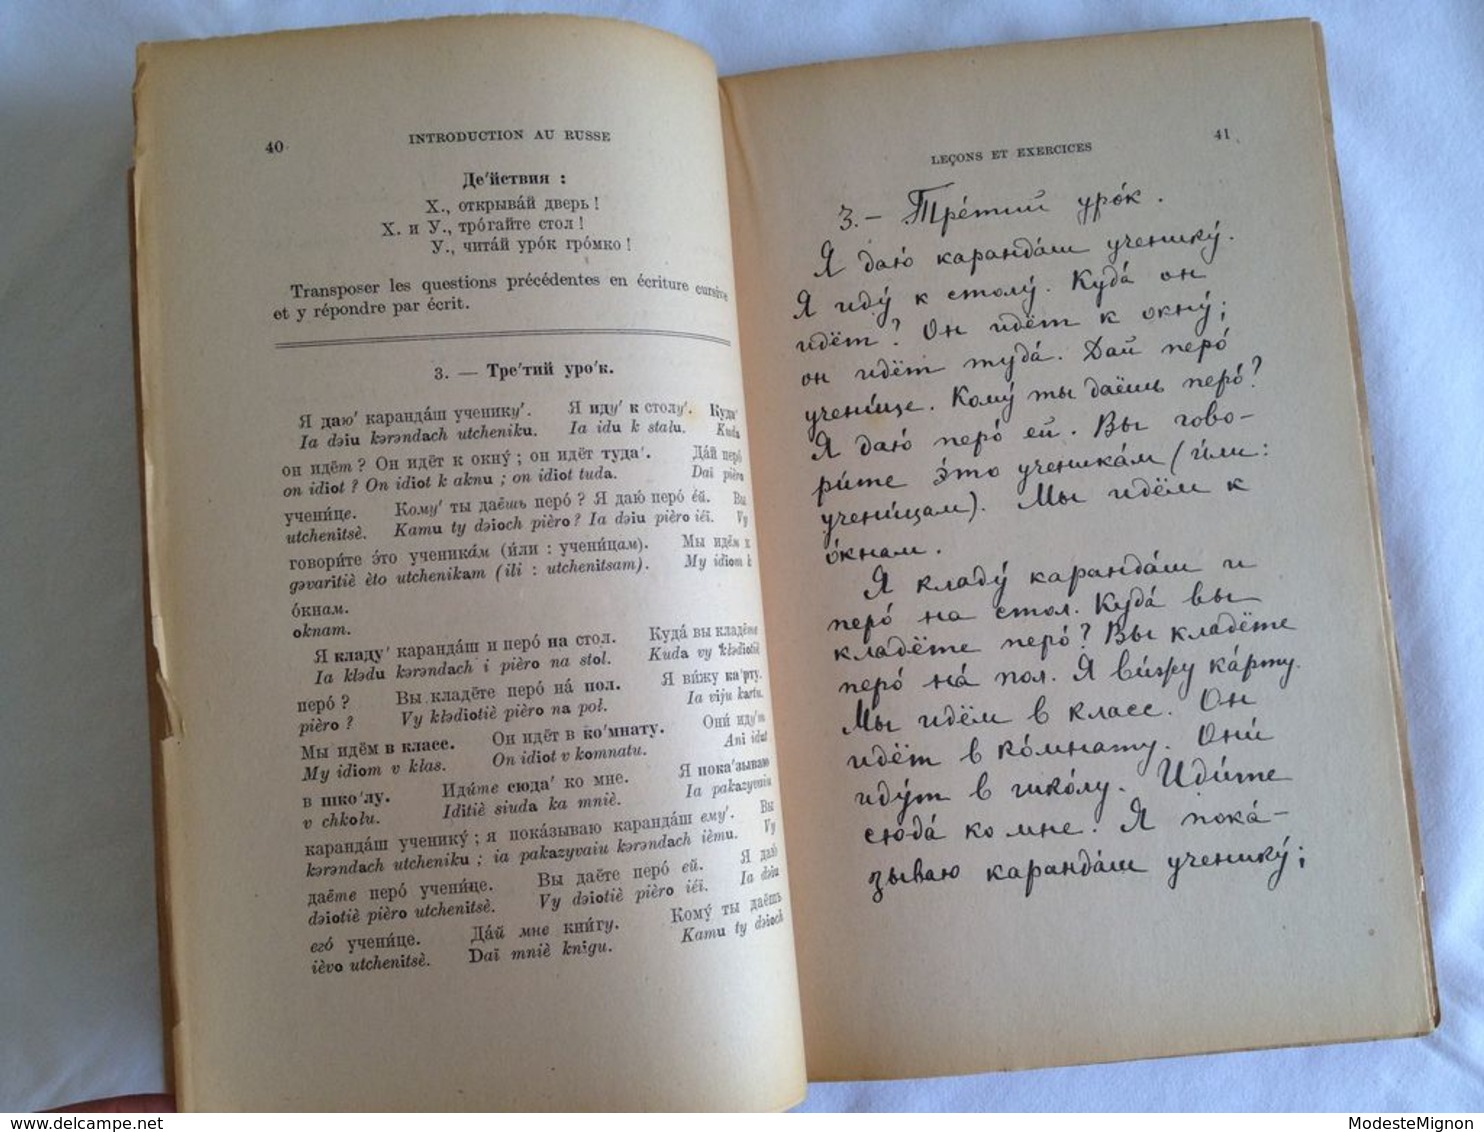 40
INTRODUCTION AU RUSSE
Де′йствия :
Х., открыва́й дверь !
Х. и У., тро́гайте стол !
У., чита́й уро́к гро́мко !
Transposer les questions précédentes en écriture cursive
et y répondre par écrit.
3. — Тре′тий уро′к.
Я даю′ каранда́ш ученику′. Я иду′ к столу′. Куда′
Ia dəiu kərəndach utcheniku. Ia idu k stału. Kuda
он идёт ? Он идёт к окну́ ; он идёт туда′. Да́й перо́
on idiot ? On idiot k aknu ; on idiot tuda. Daï pièro
учени́це. Кому′ ты даёшь перо́ ? Я даю́ перо́ е́й. Вы
utchenitsè. Kamu ty dəioch pièro ? Ia dəiu pièro iéï. Vy
говори́те э́то ученика́м (и́ли : учени́цам). Мы идём к
gəvaritiè èto utchenikam (ili : utchenitsam). My idiom k
о́кнам.
oknam.
Я кладу′ каранда́ш и перо́ на стол. Куда́ вы кладёте
Ia kładu kərəndach i pièro na stol. Kuda vy kłədiotiè
перо́ ? Вы кладёте перо́ на́ пол. Я ви́жу ка′рту.
pièro ? Vy kłədiotiè pièro na pol. Ia viju kartu.
Мы идём в класс. Он идёт в ко′мнату. Они́ иду′т
My idiom v kłas. On idiot v komnatu. Ani idut
в шко′лу. Иди́те сюда′ ко мне. Я пока′зываю
v chkołu. Iditiè siuda ka mniè. Ia pakazyvaiu
каранда́ш ученику́ ; я пока́зываю каранда́ш ему′. Вы
kərəndach utcheniku ; ia pakazyvaiu kərəndach ièmu. Vy
даёте перо́ учени́це. Вы даёте перо́ ей. Я даю́
dəiotiè pièro utchenitsè. Vy dəiotiè pièro iéï. Ia dəiu
его́ учени́це. Да́й мне кни́гу. Кому́ ты даёшь
ièvo utchenitsè. Daï mniè knigu. Kamu ty dəioch
41
LEÇONS ET EXERCICES
3. — Тре́тий уро́к.
Я даю́ каранда́ш ученику́.
Я иду́ к столу́. Куда́ он
идёт? Он идёт к окну́;
он идёт туда́. Дай перо́
учени́це. Кому́ ты даёшь перо́?
Я даю́ перо́ ей. Вы гово-
ри́те э́то ученика́м (и́ли:
учени́цам). Мы идём к
о́кнам.
Я кладу́ каранда́ш и
перо́ на стол. Куда́ вы
кладёте перо́? Вы кладёте
перо́ на́ пол. Я ви́жу ка́рту.
Мы идём в класс. Он
идёт в ко́мнату. Они́
иду́т в шко́лу. Иди́те
сюда́ ко мне. Я пока́-
зываю каранда́ш ученику́;
ModesteMignon